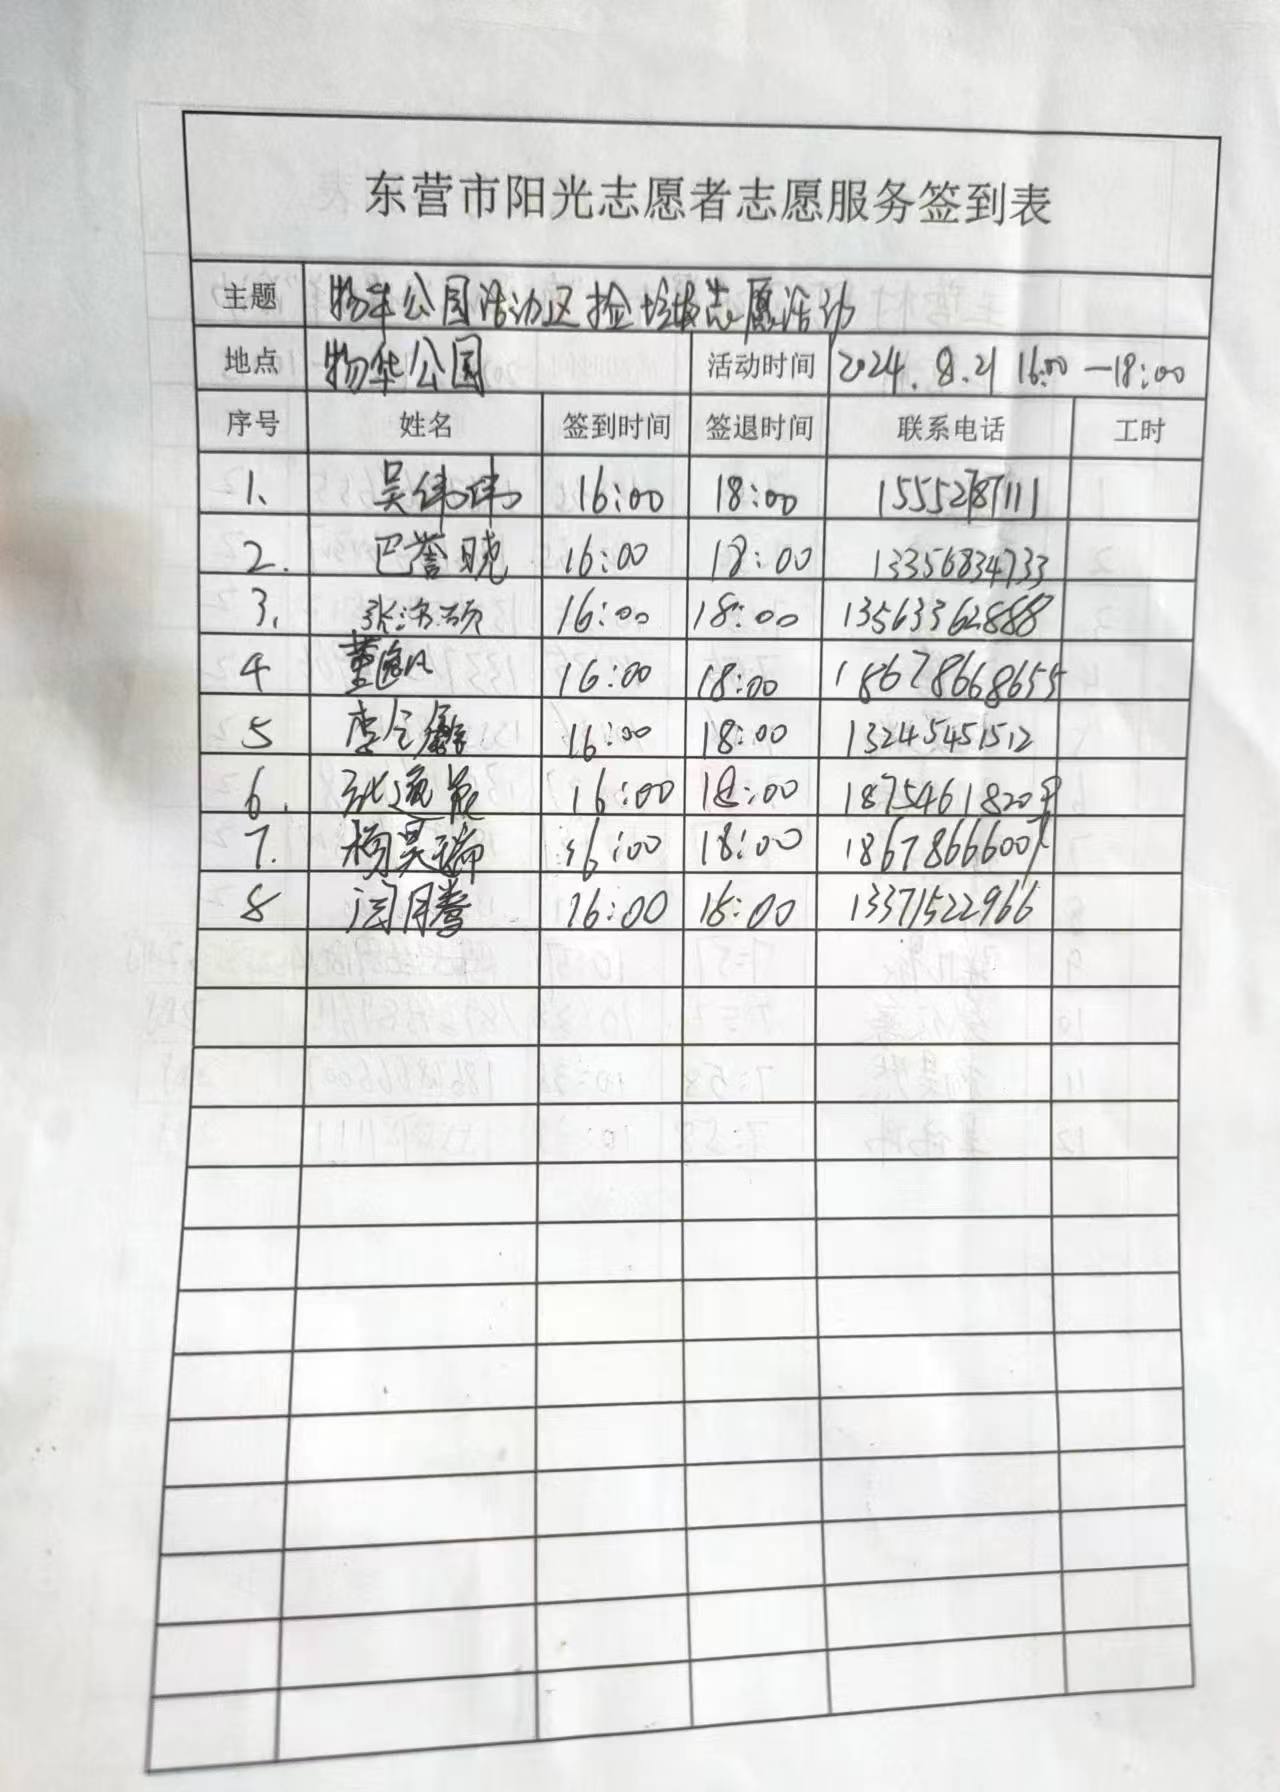 东营市阳光志愿者志愿服务签到表
主题 物华公园活动区捡垃圾志愿活动
地点 物华公园 活动时间 2024.8.21 16:00—18:00
序号 姓名 签到时间 签退时间 联系电话 工时
1、 吴伟玮 16:00 18:00 15552787111
2. 巴誉晓 16:00 18:00 13356834733
3. 16:00 18:00 13563362888
4 董逸凡 16:00 18:00 18678668655
5 16:00 18:00 13245451512
6. 16:00 18:00
7. 杨昊瑞 16:00 18:00
8 闫月鸯 16:00 18:00 13371522966